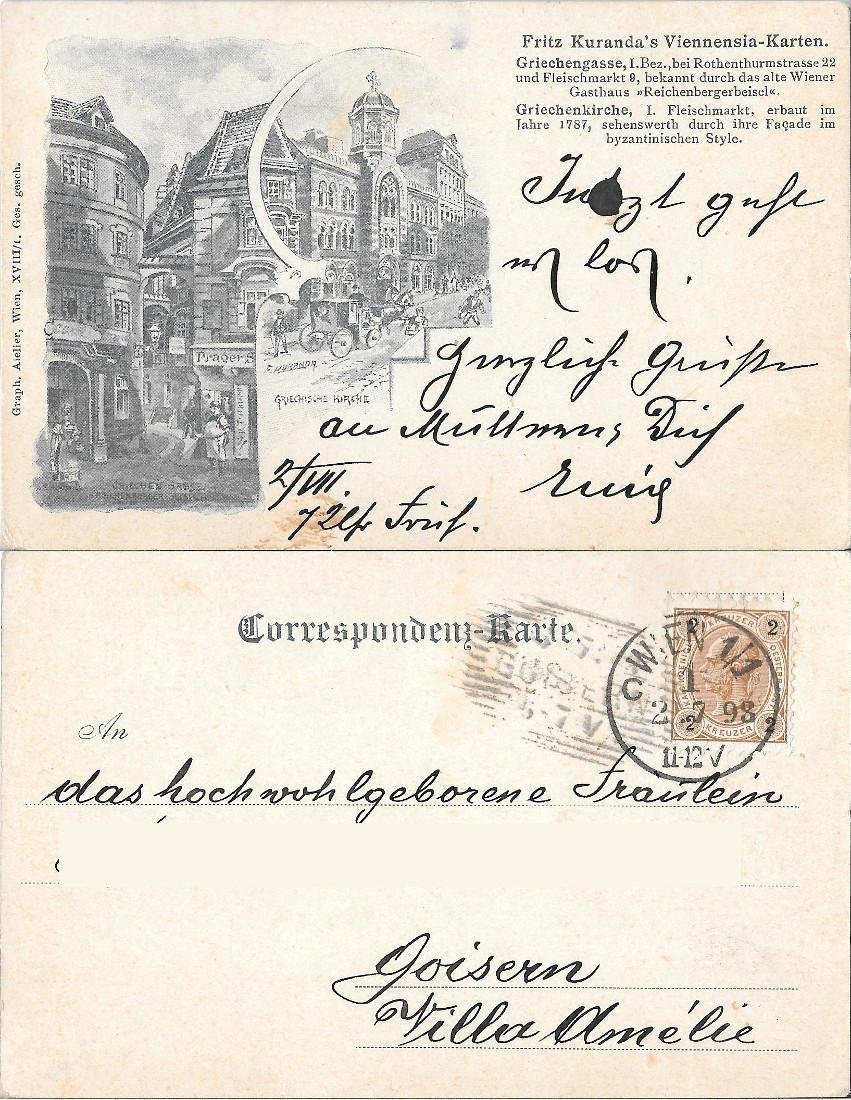 Fritz Kuranda's Viennensia-Karten.
Griechengasse, I. Bez., bei Rothenthurmstrasse 22
und Fleischmarkt 9, bekannt durch das alte Wiener
Gasthaus »Reichenbergerbeisel«.
Griechenkirche, I. Fleischmarkt, erbaut im
Jahre 1787, sehenswerth durch ihre Façade im
byzantinischen Style.
Graph. Atelier, Wien, XVIII/1. Ges. gesch.
Prager
F. KURANDA
GRIECHISCHE KIRCHE
GRIECHEN GASSE
Jetzt geht
es los.
Herzliche Grüße
an Dich
2/VII.
Uhr Früh.
Correspondenz-Karte.
GOISERN
5-7 V
WIEN 1/1
C 1
2 7 98
11-12 V
2 KREUZER 2
2 KREUZER 2
An
das hochwohlgeborene Fräulein
Goisern
Villa Amélie